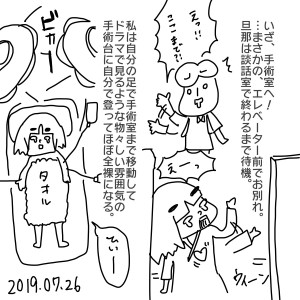 いざ、手術室へ！
…まさかの、エレベーター前でお別れ。
旦那は談話室で終わるまで待機。
ここまでです
えっ
えーっ
ウィーン
私は自分の足で手術室まで移動して
ドラマで見るような物々しい雰囲気の
手術台に自分で登ってほぼ全裸になる。
ピカーッ
タオル
ひぃー
2019.07.26